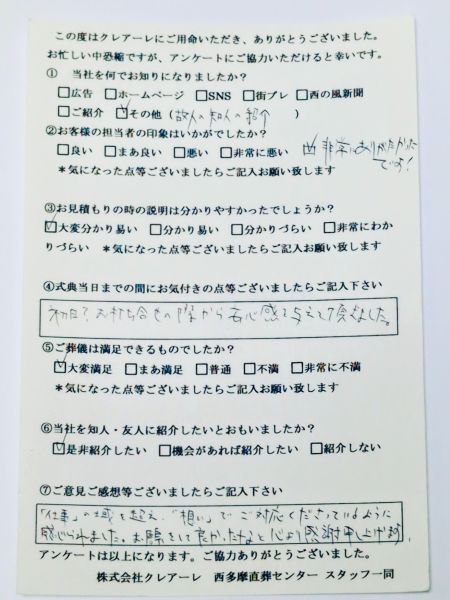 この度はクレアーレにご用命いただき、ありがとうございました。
お忙しい中恐縮ですが、アンケートにご協力いただけると幸いです。
① 当社を何でお知りになりましたか？
□広告 □ホームページ □SNS □街プレ □西の風新聞
□ご紹介 ☑その他（故人の知人の紹介 ）
②お客様の担当者の印象はいかがでしたか？
□良い □まあ良い □悪い □非常に悪い ☑非常にありがたかったです！
＊気になった点等ございましたらご記入お願い致します
③お見積もりの時の説明は分かりやすかったでしょうか？
☑大変分かり易い □分かり易い □分かりづらい □非常にわか
りづらい ＊気になった点等ございましたらご記入お願い致します
④式典当日までの間にお気付きの点等ございましたらご記入下さい
初日でお打ち合せの際から安心感を与えて頂きました。
⑤ご葬儀は満足できるものでしたか？
☑大変満足 □まあ満足 □普通 □不満 □非常に不満
＊気になった点等ございましたらご記入お願い致します
⑥当社を知人・友人に紹介したいとおもいましたか？
☑是非紹介したい □機会があれば紹介したい □紹介しない
⑦ご意見ご感想等ございましたらご記入下さい
「仕事」の域を超え、"想い"でご対応くださっているように
感じられました。お願をして良かったなと心より感謝申し上げます。
アンケートは以上になります。ご協力ありがとうございました。
株式会社クレアーレ 西多摩直葬センター スタッフ一同